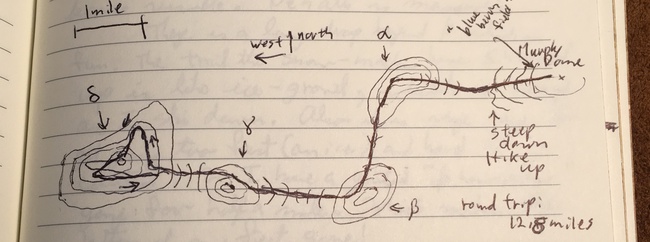 1 mile
west north
α
"blue
berry
field"
Murphy
Dome
x
δ
γ
steep
down
Hike
up
β
round trip:
12.8 miles